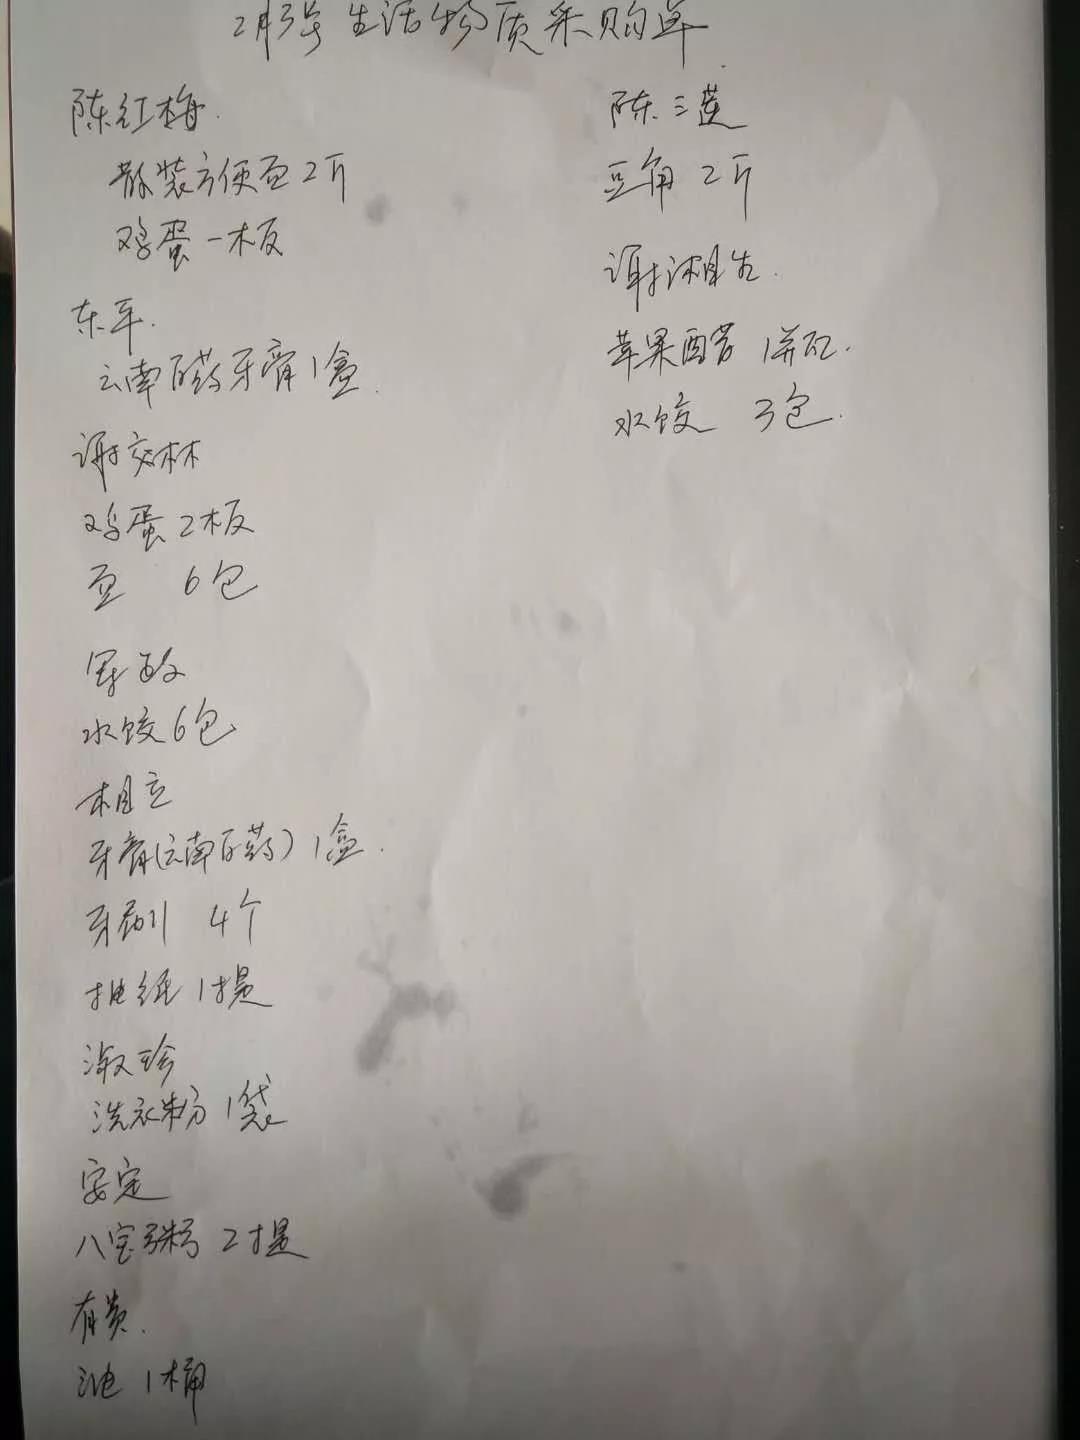 2月3号生活物质采购单
陈红梅.
散装方便面2斤
鸡蛋一板
东平.
云南白药牙膏1盒.
谢交林
鸡蛋2板
面 6包
军政
水饺6包
相立
牙膏(云南白药)1盒.
牙刷 4个
抽纸1提
淑珍
洗衣粉1袋
安定
八宝粥 2提
有贵.
油 1桶
陈三莲
豆角 2斤
谢湘生.
苹果醋 1瓶.
水饺 3包.